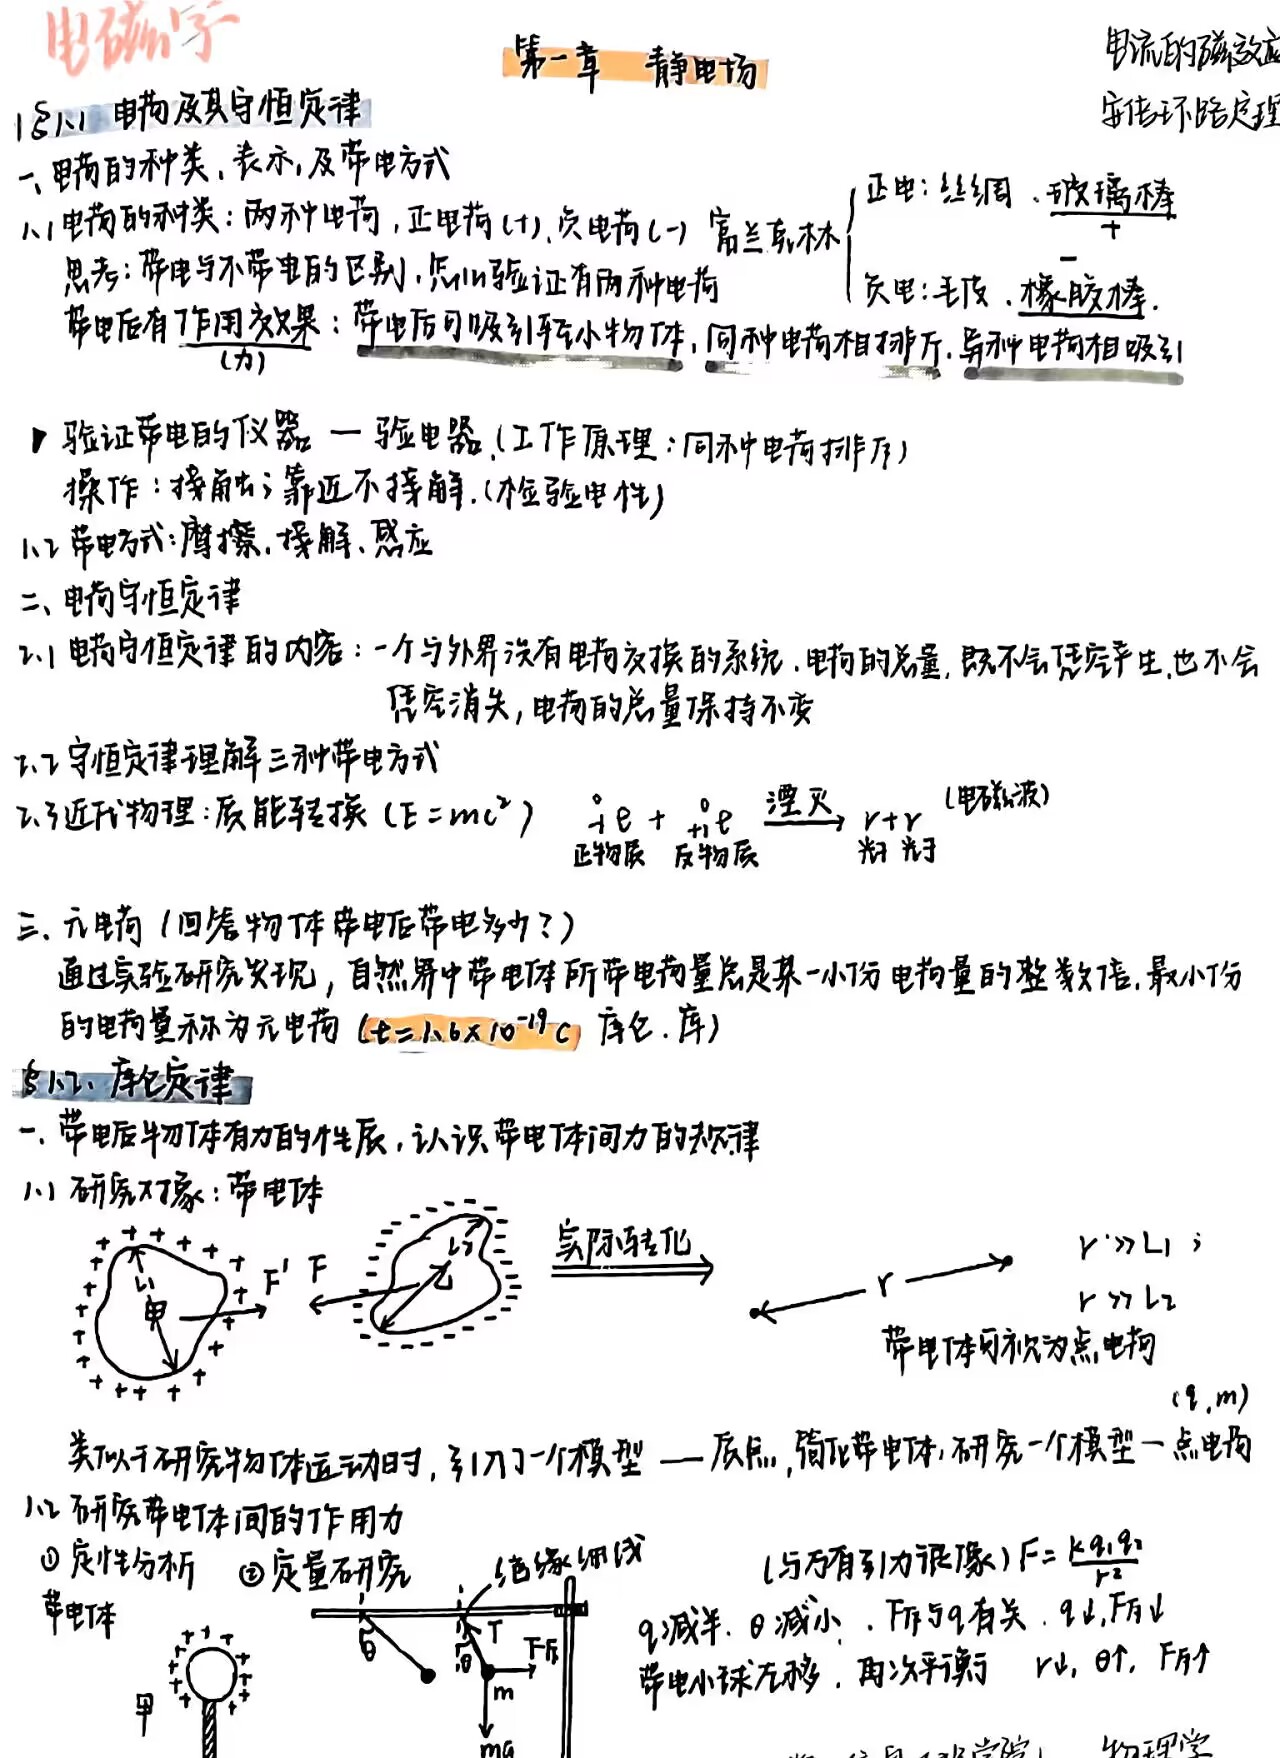 电磁学
第一章 静电场
电流的磁效应
安培环路定理
§1.1 电荷及其守恒定律
一、电荷的种类、表示、及带电方式
1.1 电荷的种类：两种电荷，正电荷(+)、负电荷(-) 富兰克林
正电：丝绸、玻璃棒
+
-
负电：毛皮、橡胶棒.
思考：带电与不带电的区别，怎么验证有两种电荷
带电后有作用效果：带电后可吸引轻小物体，同种电荷相排斥，异种电荷相吸引
(力)
验证带电的仪器 — 验电器.(工作原理：同种电荷排斥)
操作：接触；靠近不接触.(检验电性)
1.2 带电方式：摩擦、接触、感应
二、电荷守恒定律
2.1 电荷守恒定律的内容：一个与外界没有电荷交换的系统，电荷的总量，既不会凭空产生，也不会
凭空消失，电荷的总量保持不变
2.2 守恒定律理解三种带电方式
2.3 近代物理：质能转换 (E=mc²) ⁰₋₁e + ⁰₊₁e 湮灭→ r+r (电磁波)
正物质 反物质 光子 光子
三、元电荷 (回答物体带电后带电多少？)
通过实验研究发现，自然界中带电体所带电荷量总是某一小份电荷量的整数倍，最小份
的电荷量称为元电荷 (e=1.6×10⁻¹⁹C 库仑.库)
§1.2. 库仑定律
一、带电后物体有力的性质，认识带电体间力的规律
1.1 研究对象：带电体
L₁ 甲 F' F L₂ 乙 实际转化 r r>>L₁；
r>>L₂
带电体可视为点电荷
(q,m)
类似于研究物体运动时，引入了一个模型 — 质点，简化带电体，研究一个模型 — 点电荷
1.2 研究带电体间的作用力
① 定性分析 ② 定量研究 绝缘细线 (与万有引力很像) F=kq₁q₂/r²
带电体 θ θ T F斥 q减半、θ减小、F斥与q有关. q↓,F斥↓
m 带电小球左移、再次平衡 r↓, θ↑, F斥↑
甲 mg
物理学